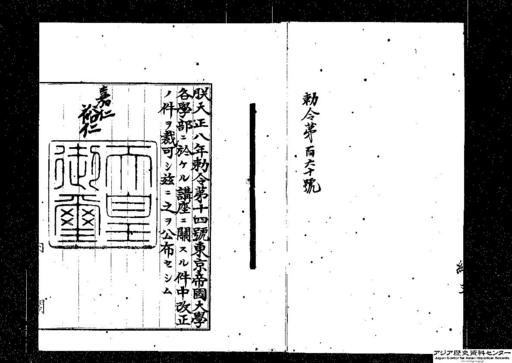 勅令第百六十號
朕大正八年勅令第十四號東京帝國大學
各學部ニ於ケル講座ニ關スル件中改正
ノ件ヲ裁可シ玆ニ之ヲ公布セシム
嘉仁
裕仁
天皇
御璽
内閣
アジア歴史資料センター
Japan Center for Asian Historical Records